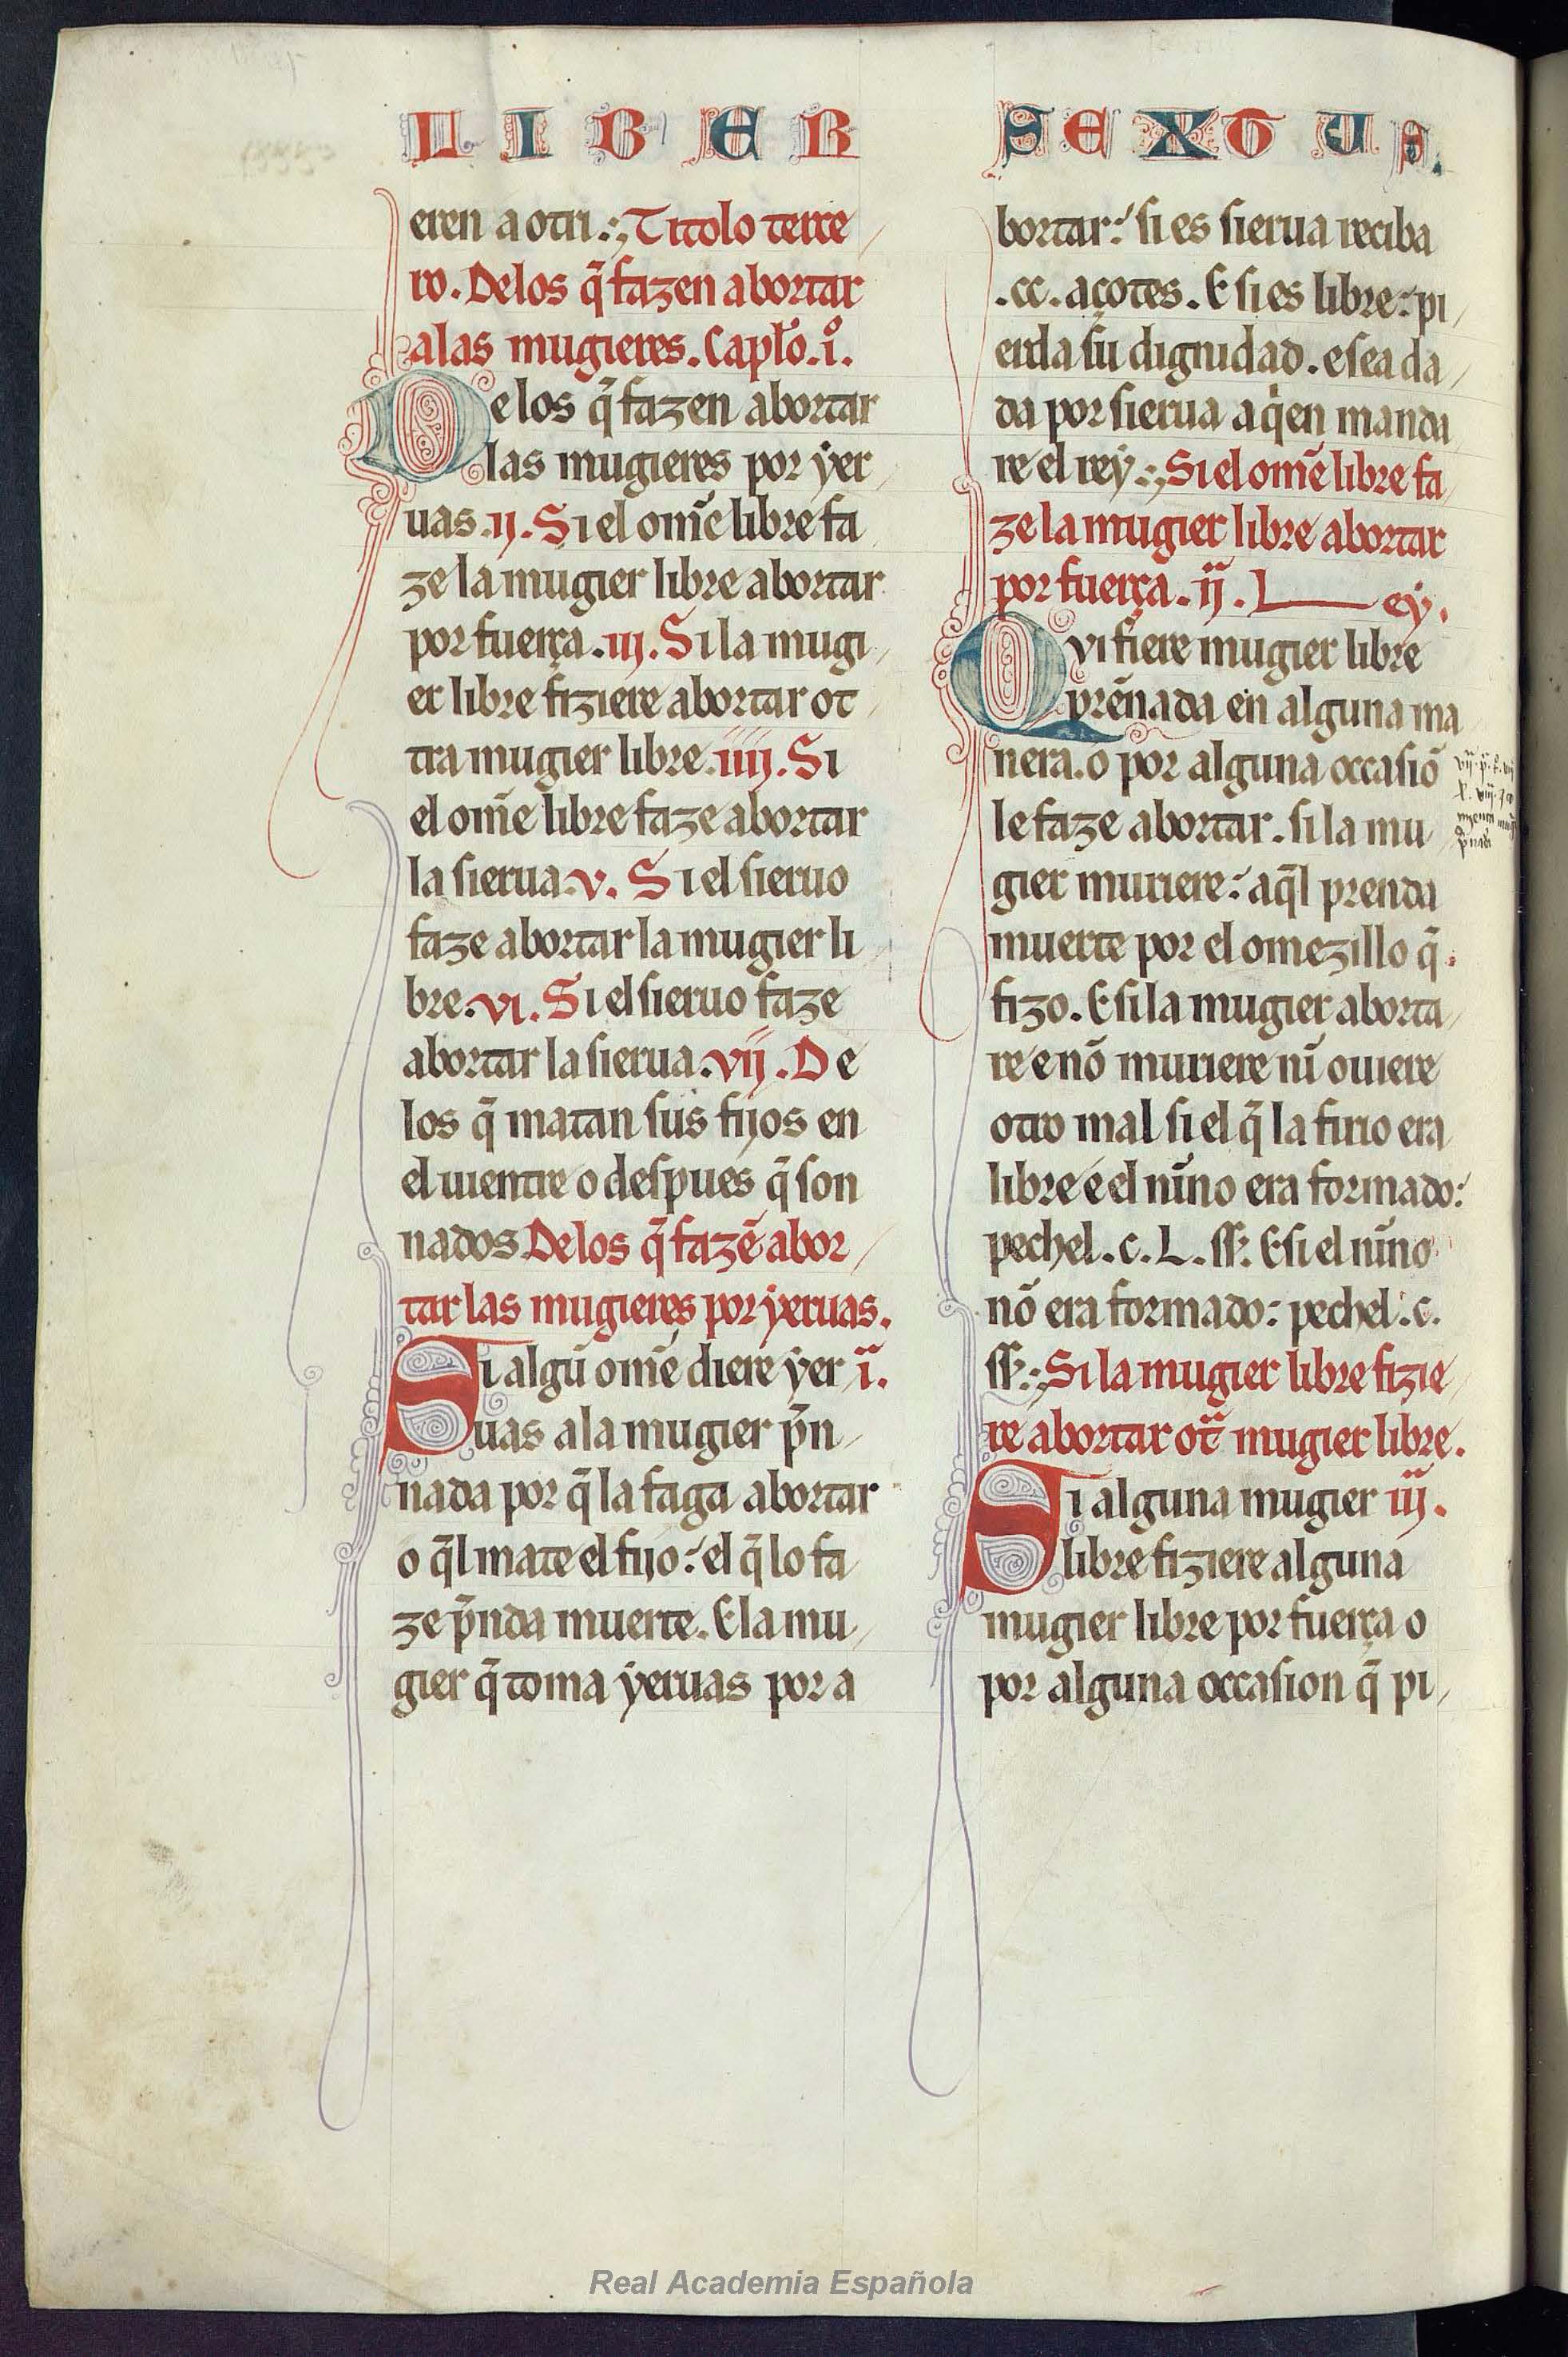 LIBER SEXTUS
eren a otri.:, Titolo terce
ro. Delos q̃ fazen abortar
alas mugieres. Caplo. i.º
De los q̃ fazen abortar
las mugieres por yer
uas. ij. Si el om̃e libre fa
ze la mugier libre abortar
por fuerça. iij. Si la mugi
er libre fiziere abortar ot
tra mugier libre. iiij. Si
el om̃e libre faze abortar
la sierua. v. Si el sieruo
faze abortar la mugier li
bre. vi. Si el sieruo faze
abortar la sierua. vij. De
los q̃ matan sus fijos en
el uientre o despues q̃ son
nados Delos q̃ fazẽ abor
tar las mugieres por yeruas.
Si algũ om̃e diere yer i.ª
uas ala mugier p̃n
nada por q̃ la faga abortar
o q̃l mate el fijo: el q̃ lo fa
ze p̃nda muerte. E la mu
gier q̃ toma yeruas por a
bortar: si es sierua reciba
.cc. açotes. E si es libre: pi
erda su dignidad. e sea da
da por sierua a qien manda
re el rey.:, Si el om̃e libre fa
ze la mugier libre abortar
por fuerça. ij.ª Ley.
Qvi fiere mugier libre
prẽnada en alguna ma
nera. o por alguna occasiõ
le faze abortar. si la mu
gier muriere: aq̃l prenda
muerte por el omezillo q̃
fizo. E si la mugier aborta
re e nõ muriere nĩ ouiere
otro mal si el q̃ la firio era
libre e el nĩno era formado:
pechel. c. L. ss. E si el nĩno
nõ era formado: pechel. c.
ss.:, Si la mugier libre fizie
re abortar otª mugier libre.
Si alguna mugier iij.ª
libre fiziere alguna
mugier libre por fuerça o
por alguna occasion q̃ pi
Real Academia Española